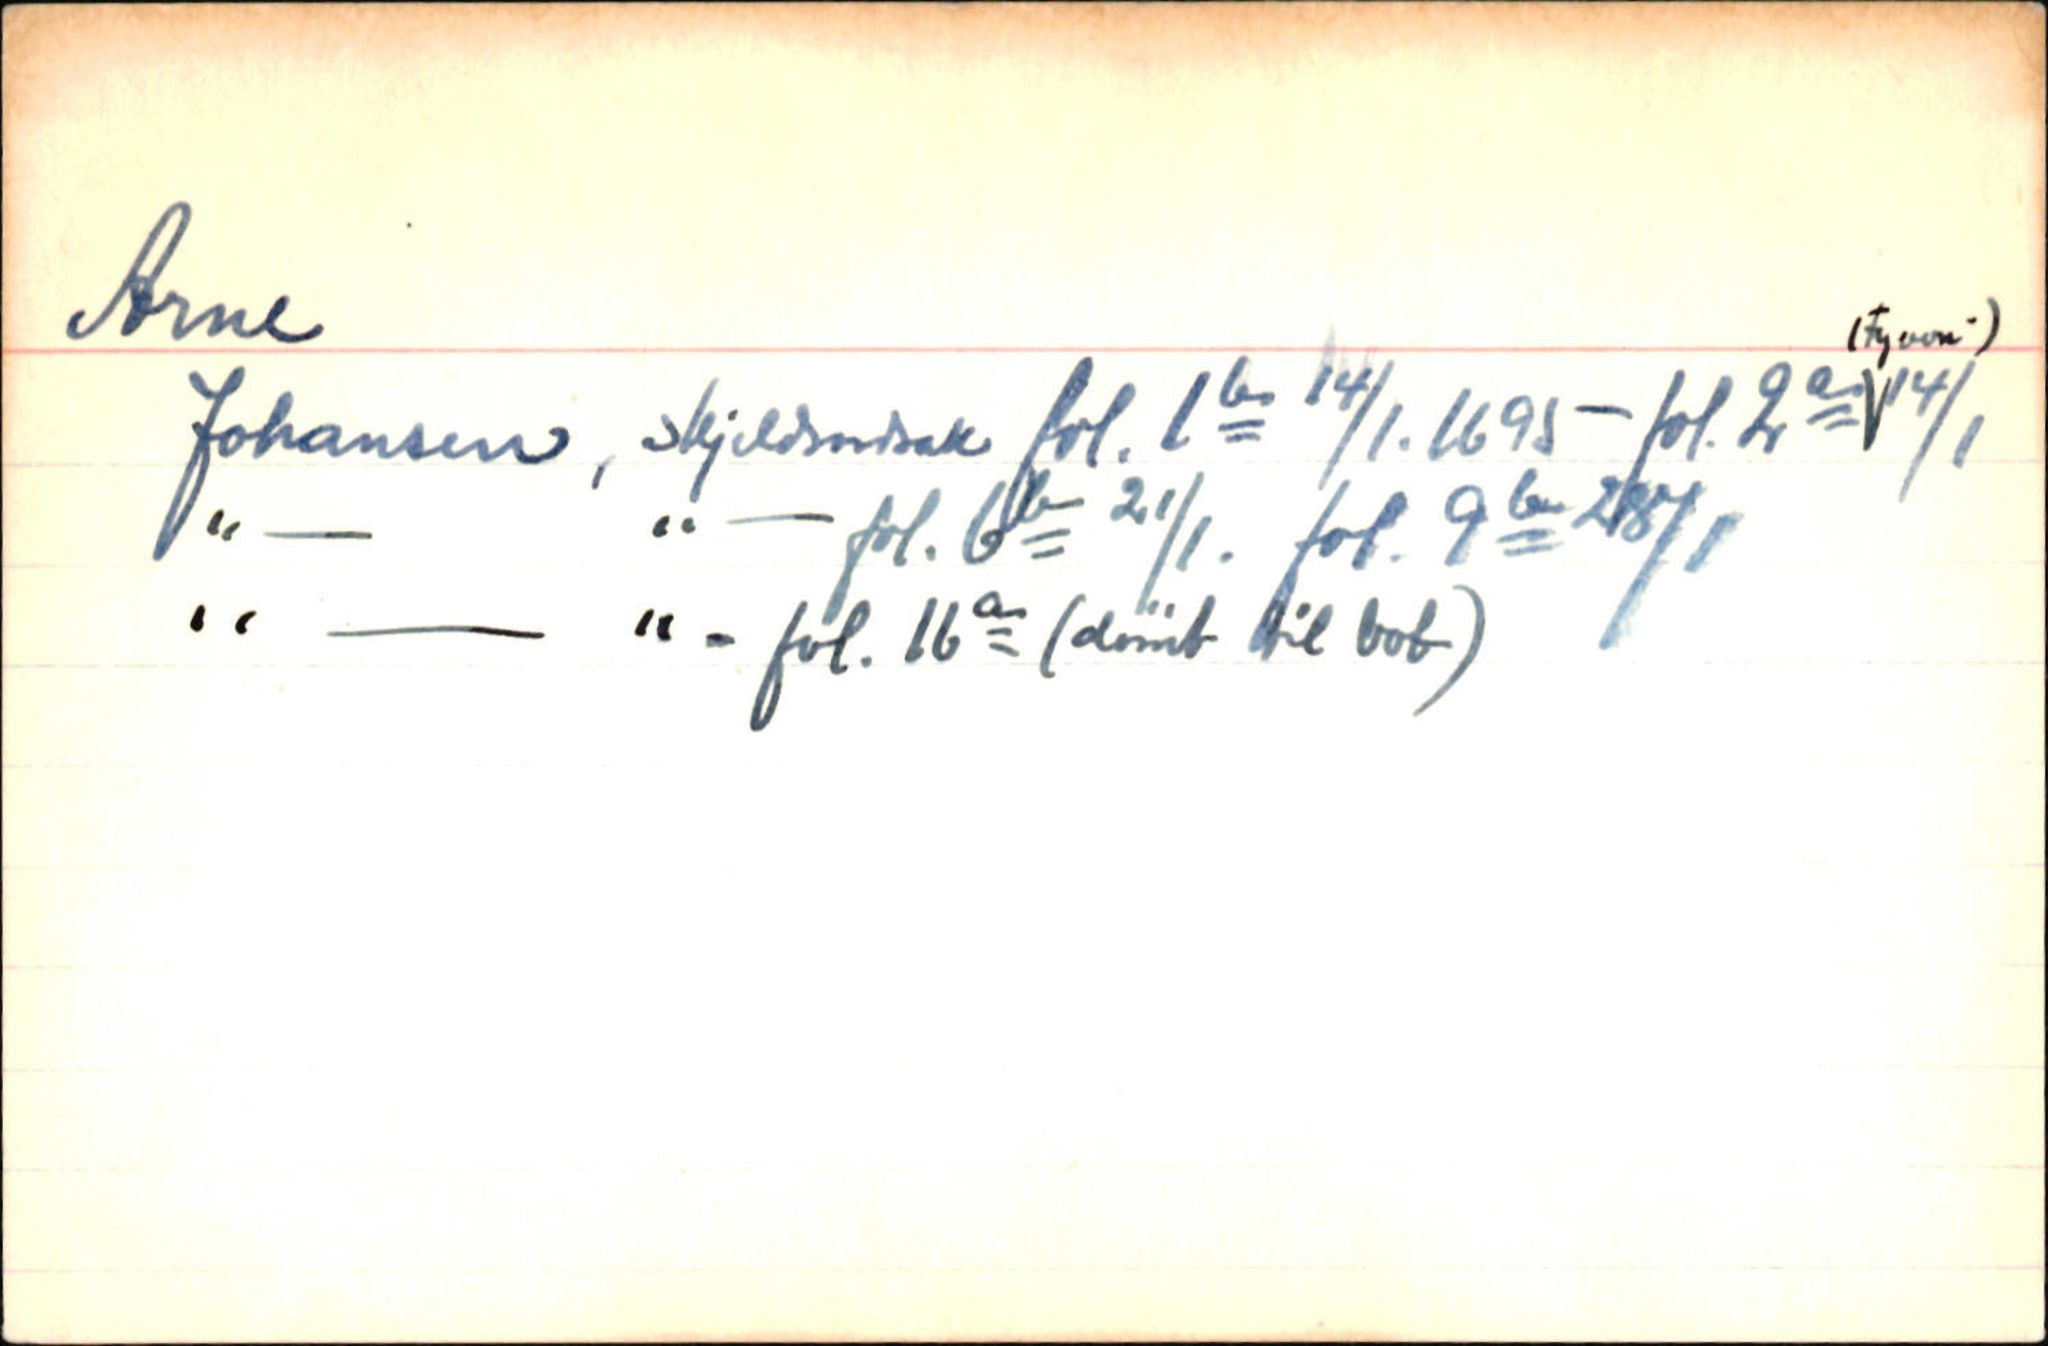 Arne
(Tyveri)
Johansen, skjeldsordsak fol. 1b 14/1. 1695 – fol. 2a √ 14/1
"— " — fol. 6b 21/1. fol. 9b 28/1
" — " - fol. 16a (dømt til bot)